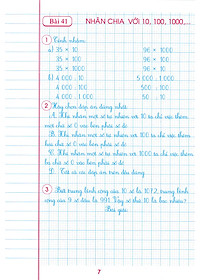 Bài 41
NHÂN CHIA VỚI 10, 100, 1000,...
1 Tính nhẩm:
a) 35 × 10 96 × 1000
35 × 100 96 × 100
35 × 1000 96 × 10
b) 4 000 : 10 5 000 : 1 000
4 000 : 100 500 : 100
4 000 : 1 000 50 : 10
2 Hãy chọn đáp án đúng nhất:
A. Khi nhân một số tự nhiên với 10 ta chỉ việc thêm
một chữ số 0 vào bên phải số đó.
B. Khi nhân một số tự nhiên với 100 ta chỉ việc thêm
hai chữ số 0 vào bên phải số đó.
C. Khi nhân một số tự nhiên với 1000 ta chỉ việc thêm
ba chữ số 0 vào bên phải số đó.
D. Tất cả các đáp án trên đều đúng.
3 Biết trung bình cộng của 10 số là 1072, trung bình
cộng của 9 số đầu là 991. Vậy số thứ 10 là bao nhiêu?
Bài giải
7